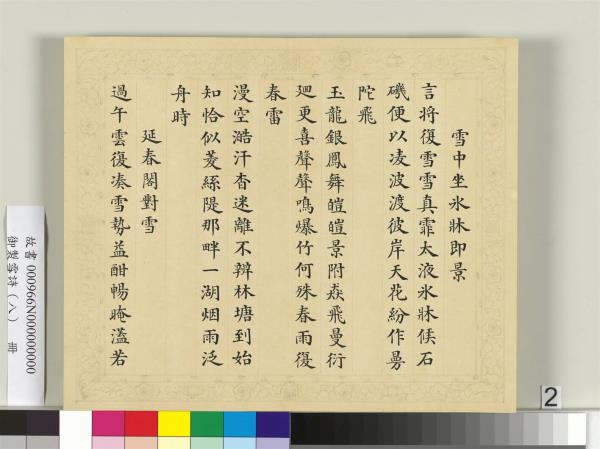 雪中坐氷牀即景
言将復雪雪真霏太液氷牀候石
磯便以凌波渡彼岸天花紛作曼
陀飛
玉龍銀鳳舞皚皚景附猋飛曼衍
廻更喜聲聲鳴爆竹何殊春雨復
春雷
漫空澔汗杳迷離不辨林塘到始
知恰似菱絲隄那畔一湖烟雨泛
舟時
延春閣對雪
過午雲復凑雪勢益酣暢晻濭若
故書 000966N000000000
御製雪詩（八） 冊
2